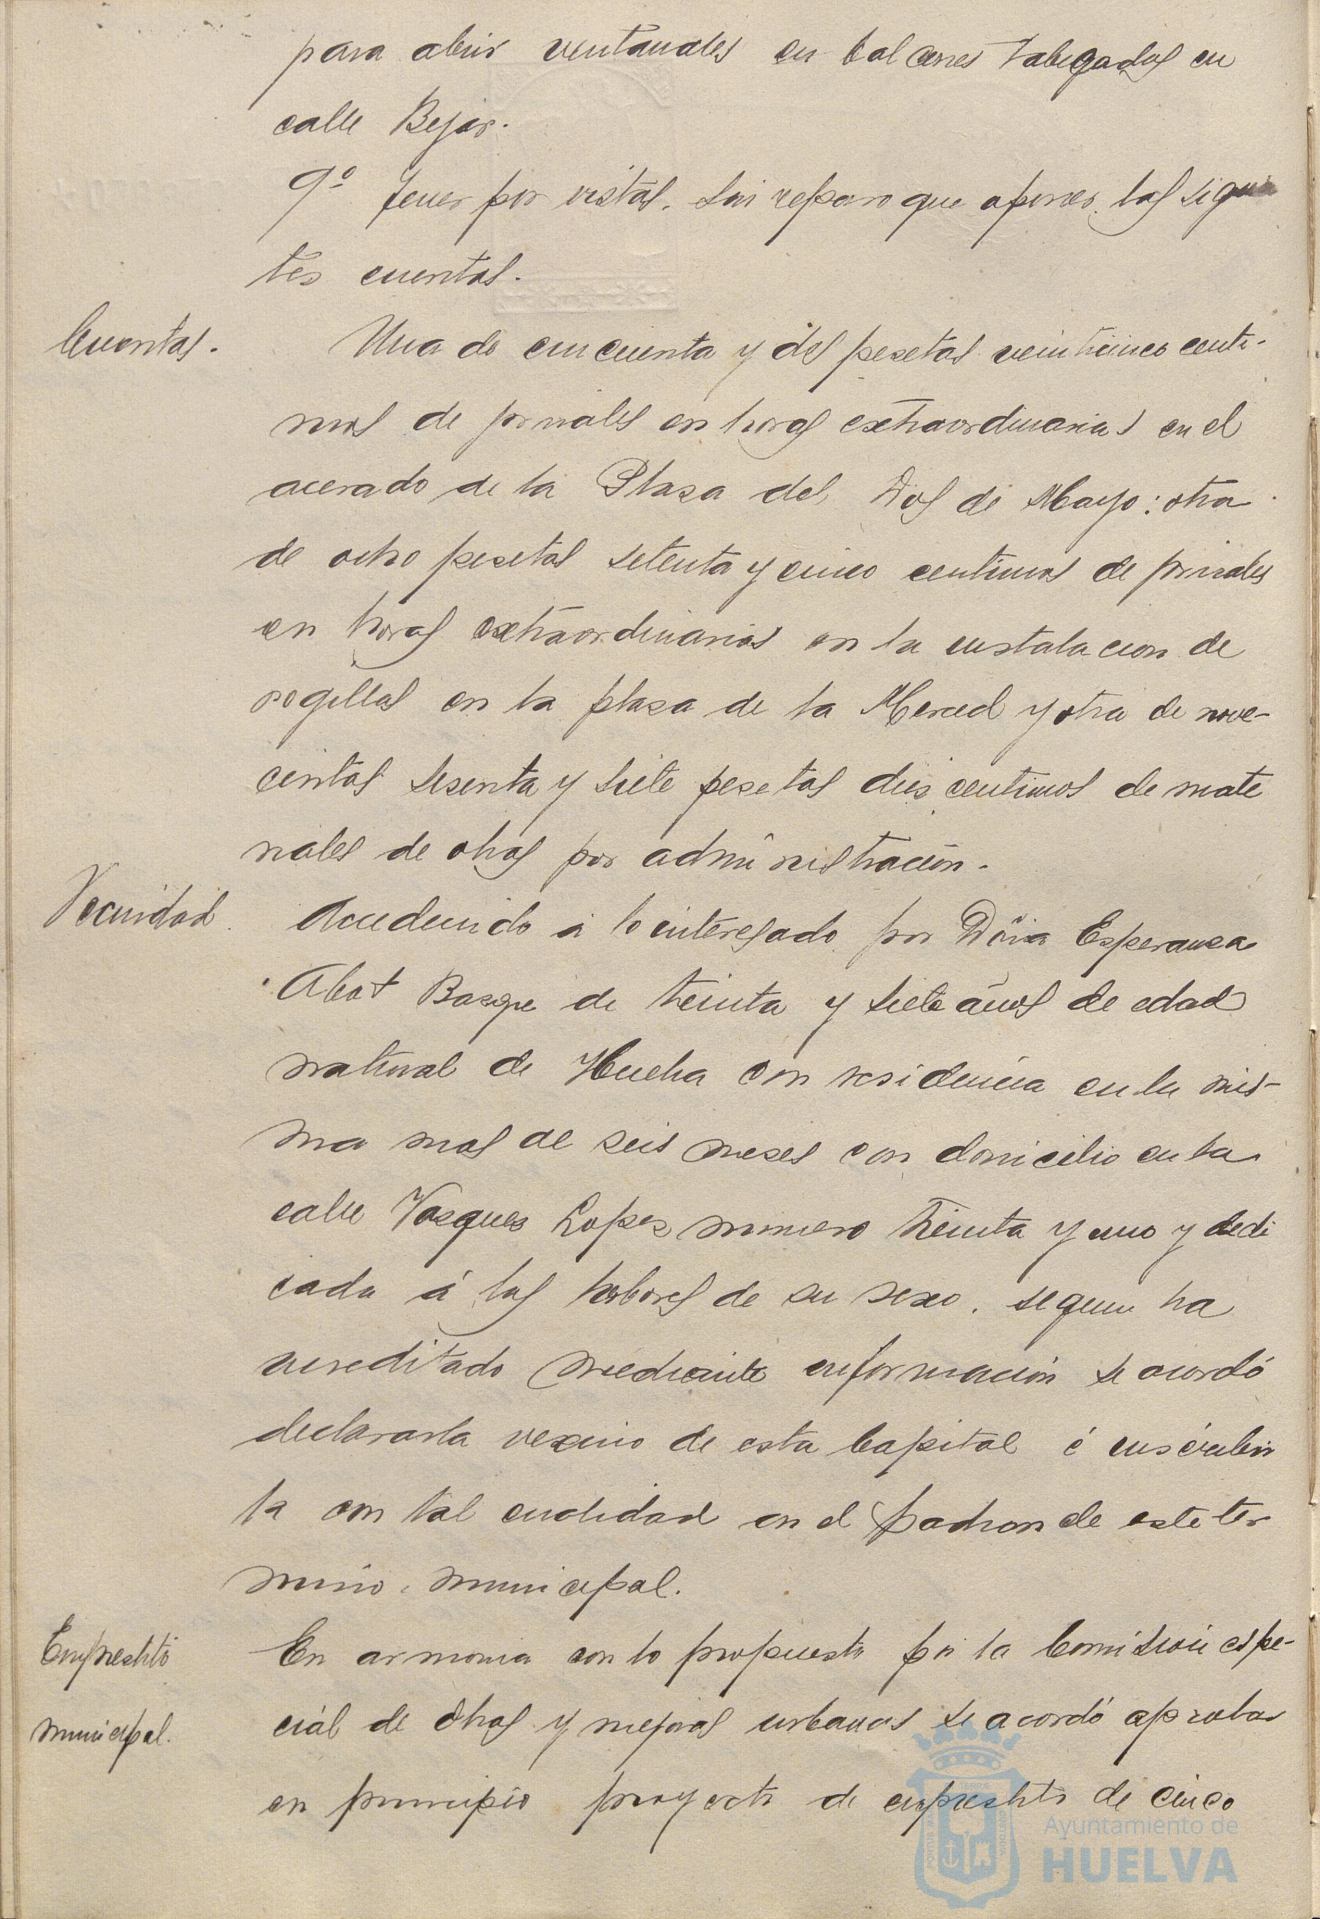 para abrir ventanales en balcones tabicados en
calle Bejar.
9º tener por vistas, sin reparo que oponer, las siguien
tes cuentas.
Cuentas.
Una de cincuenta y dos pesetas veinticinco centi-
mos de jornales en horas extraordinarias en el
acerado de la Plaza del Dos de Mayo: otra
de ocho pesetas setenta y cinco centimos de jornales
en horas extraordinarias en la instalacion de
rogillas en la plaza de la Merced y otra de nove-
cientas sesenta y siete pesetas diez centimos de mate
riales de obras por administración.
Vecindad.
Accediendo a lo interesado por Doña Esperanza
Abat de treinta y siete años de edad
natural de Huelva con residencia en la mis-
ma mas de seis meses con domicilio en la
calle Vazquez Lopez numero treinta y uno y dedi
cada á las labores de su sexo, segun ha
acreditado mediante información se acordó
declararla vecino de esta Capital é inscribir
la con tal cualidad en el padron de este ter
mino municipal.
Emprestito
municipal.
En armonia con lo propuesto por la Comisión espe-
cial de Obras y mejoras urbanas se acordó aprobar
en principio proyecto de emprestito de cinco
Ayuntamiento de
HUELVA